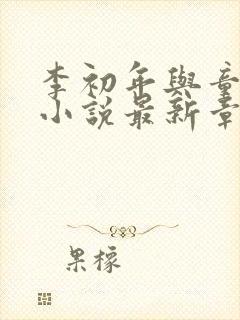 李初年與童
小說最新章
果檬